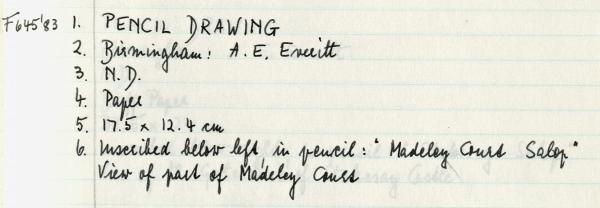 F645'83 1. PENCIL DRAWING
2. Birmingham: A. E. Everitt
3. N.D.
4. Paper
5. 17.5 x 12.4 cm
6. Inscribed below left, in pencil: "Madeley Court Salop"
View of part of Madeley Court